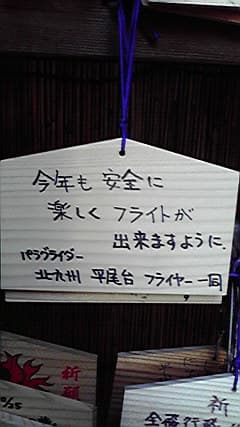 今年も 安全に
楽しく フライトが
出来ますように.
パラグライダー
北九州 平尾台 フライヤー一同
祈願
祈